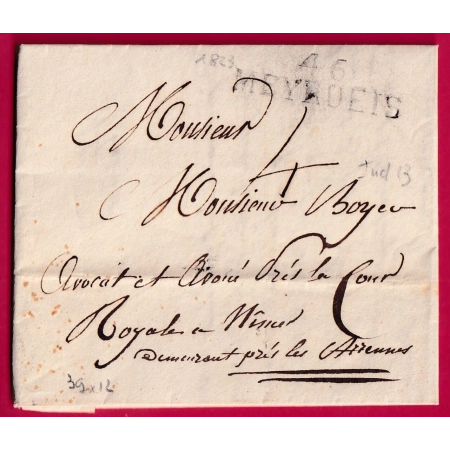 1823
46
MEYRUEIS
Monsieur
Monsieur Boyer
Jnd 13
Avocat et Avoué Près la Cour
Royale a Nîmes
Demeurant près les Arrennes
39x12